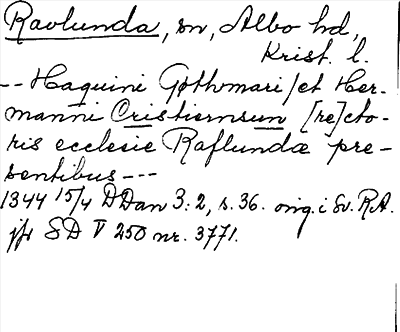 Ravlunda, sn, Albo hd,
Krist. l.
-- Haquini Gøthmari / et Her-
manni Cristiernsun [re]cto-
ris ecclesie Raflundæ pre-
sentibus ---
1344 15/4 DDan 3:2, s. 36. orig. i Sv. R.A.
jfr SD V 250 nr. 3771.